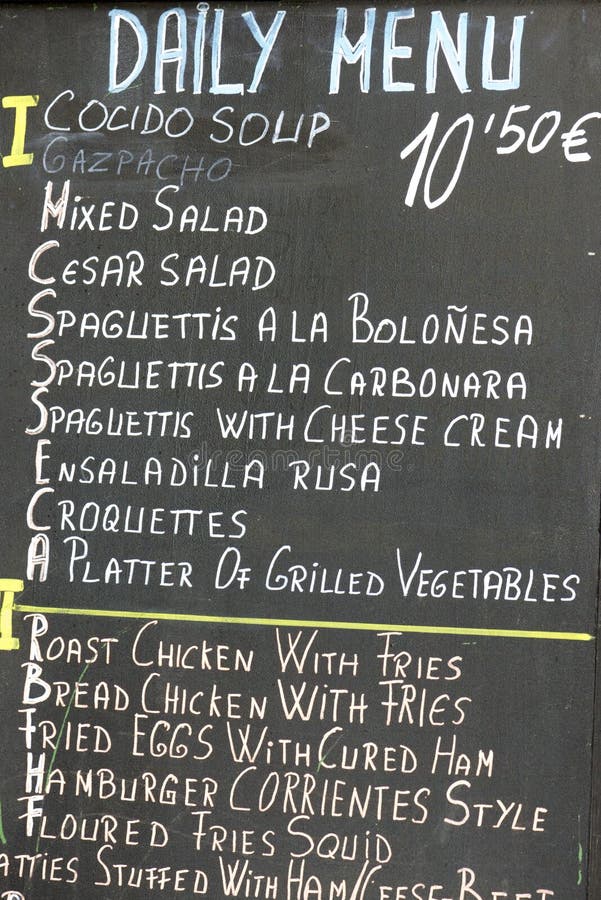 DAILY MENU
I COCIDO SOUP 10'50€
GAZPACHO
MIXED SALAD
CESAR SALAD
SPAGUETTIS A LA BOLOÑESA
SPAGUETTIS A LA CARBONARA
SPAGUETTIS WITH CHEESE CREAM
ENSALADILLA RUSA
CROQUETTES
A PLATTER OF GRILLED VEGETABLES
I
ROAST CHICKEN WITH FRIES
BREAD CHICKEN WITH FRIES
FRIED EGGS WITH CURED HAM
HAMBURGER CORRIENTES STYLE
FLOURED FRIES SQUID
ATTIES STUFFED WITH HAM/CEESE-BEEF
dreamstime.com